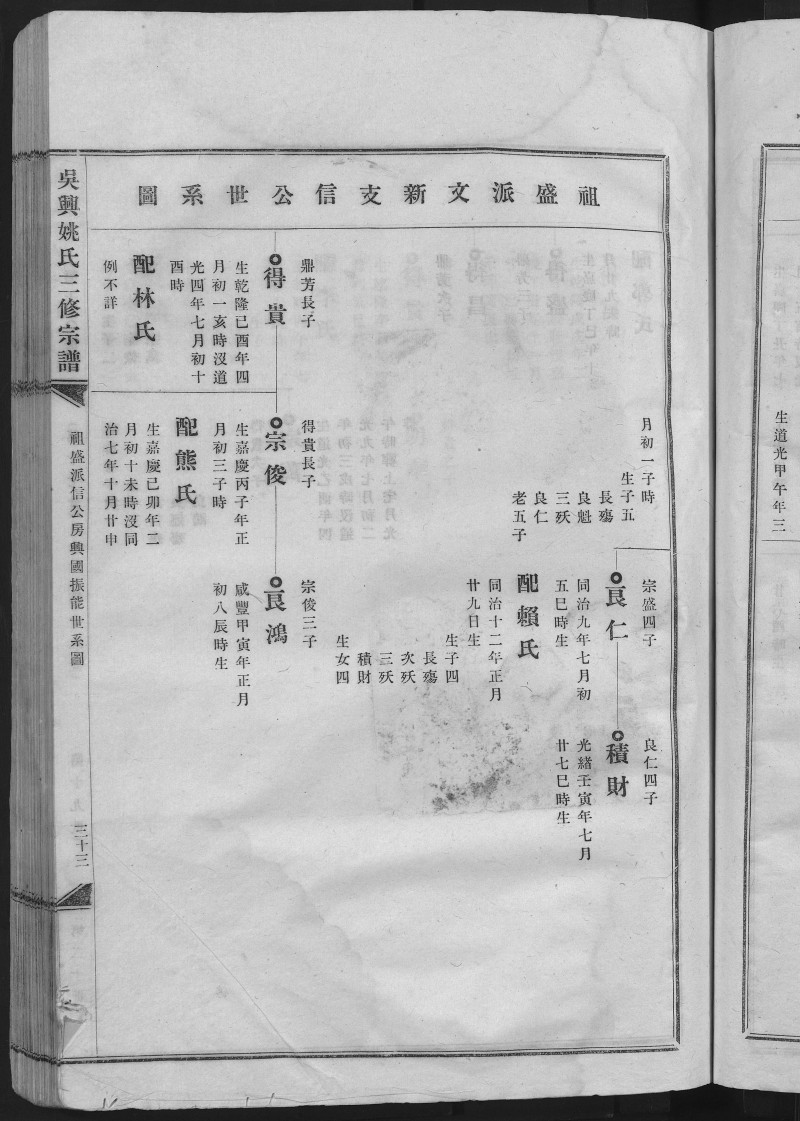 生道光甲午年三
祖盛派文新支信公世系圖
月初一子時
生子五
長殤
良魁
三殀
良仁
老五子
宗盛四子
良仁
同治九年七月初
五巳時生
配賴氏
同治十二年正月
廿九日生
生子四
長殤
次殀
三殀
積財
生女四
良仁四子
積財
光緒壬寅年七月
廿七巳時生
鼎芳長子
得貴
生乾隆己酉年四
月初一亥時沒道
光四年七月初十
酉時
配林氏
例不詳
得貴長子
宗俊
生嘉慶丙子年正
月初三子時
配熊氏
生嘉慶己卯年二
月初十未時沒同
治七年十月廿申
宗俊三子
良鴻
咸豐甲寅年正月
初八辰時生
吳興姚氏三修宗譜
祖盛派信公房興國振能世系圖
三十三